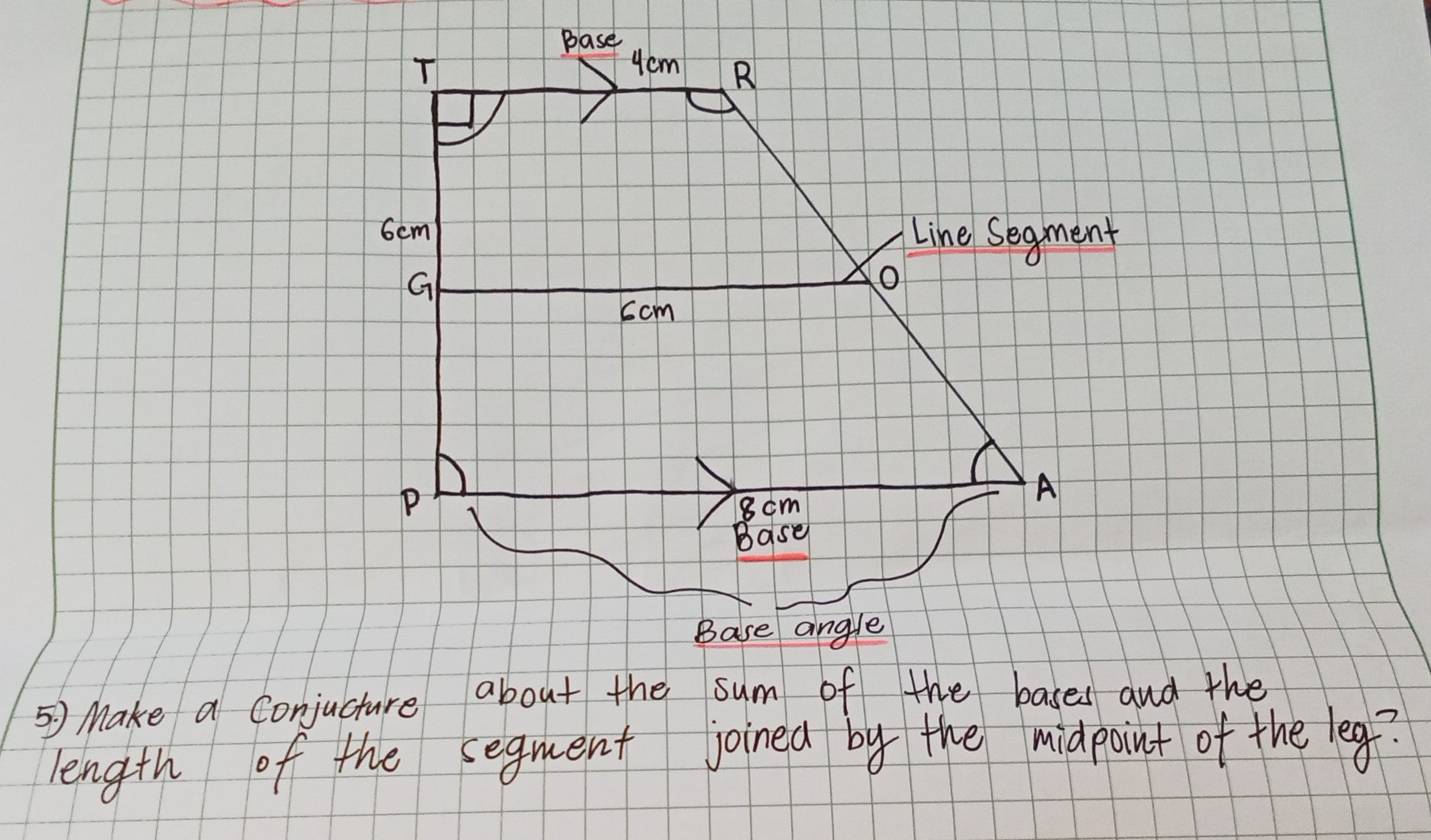 Base
T
4cm
R
6cm
Line Segment
G
O
6cm
P
A
8cm
Base
Base angle
5.) Make a Conjucture about the sum of the bases and the
length of the segment joined by the midpoint of the leg?